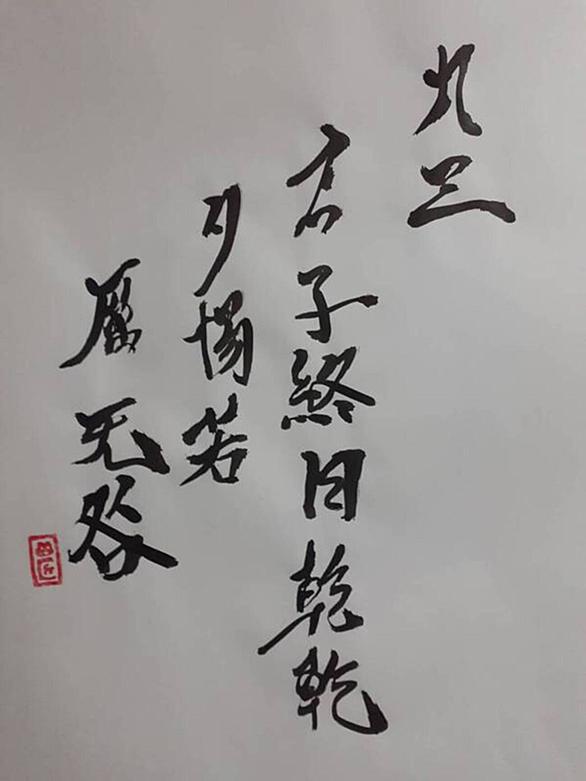 九三
君子終日乾乾
夕惕若
厲无咎